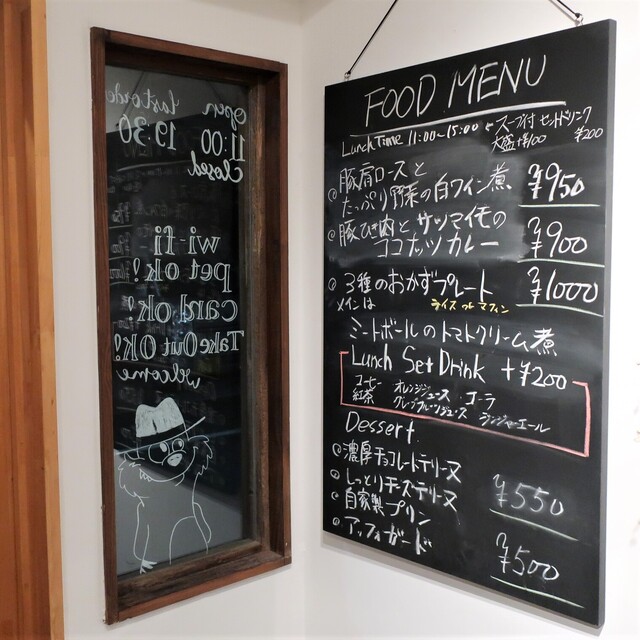 open
11:00
closed
last order
19:30
wi-fi
pet ok!
card ok!
Take Out OK!
welcome
FOOD MENU
Lunch Time 11:00~15:00 スープ付 セットドリンク
大盛+¥100 ¥200
豚肩ロースと
たっぷり野菜の白ワイン煮 ¥950
豚ひき肉とサツマイモの
ココナッツカレー ¥900
3種のおかずプレート ¥1000
メインは ライス or マフィン
ミートボールのトマトクリーム煮
Lunch Set Drink +¥200
コーヒー オレンジジュース・コーラ
紅茶 グレープフルーツジュース・ジンジャーエール
Dessert
濃厚チョコレートテリーヌ
しっとりチーズテリーヌ ¥550
自家製プリン
アッフォガード ¥500